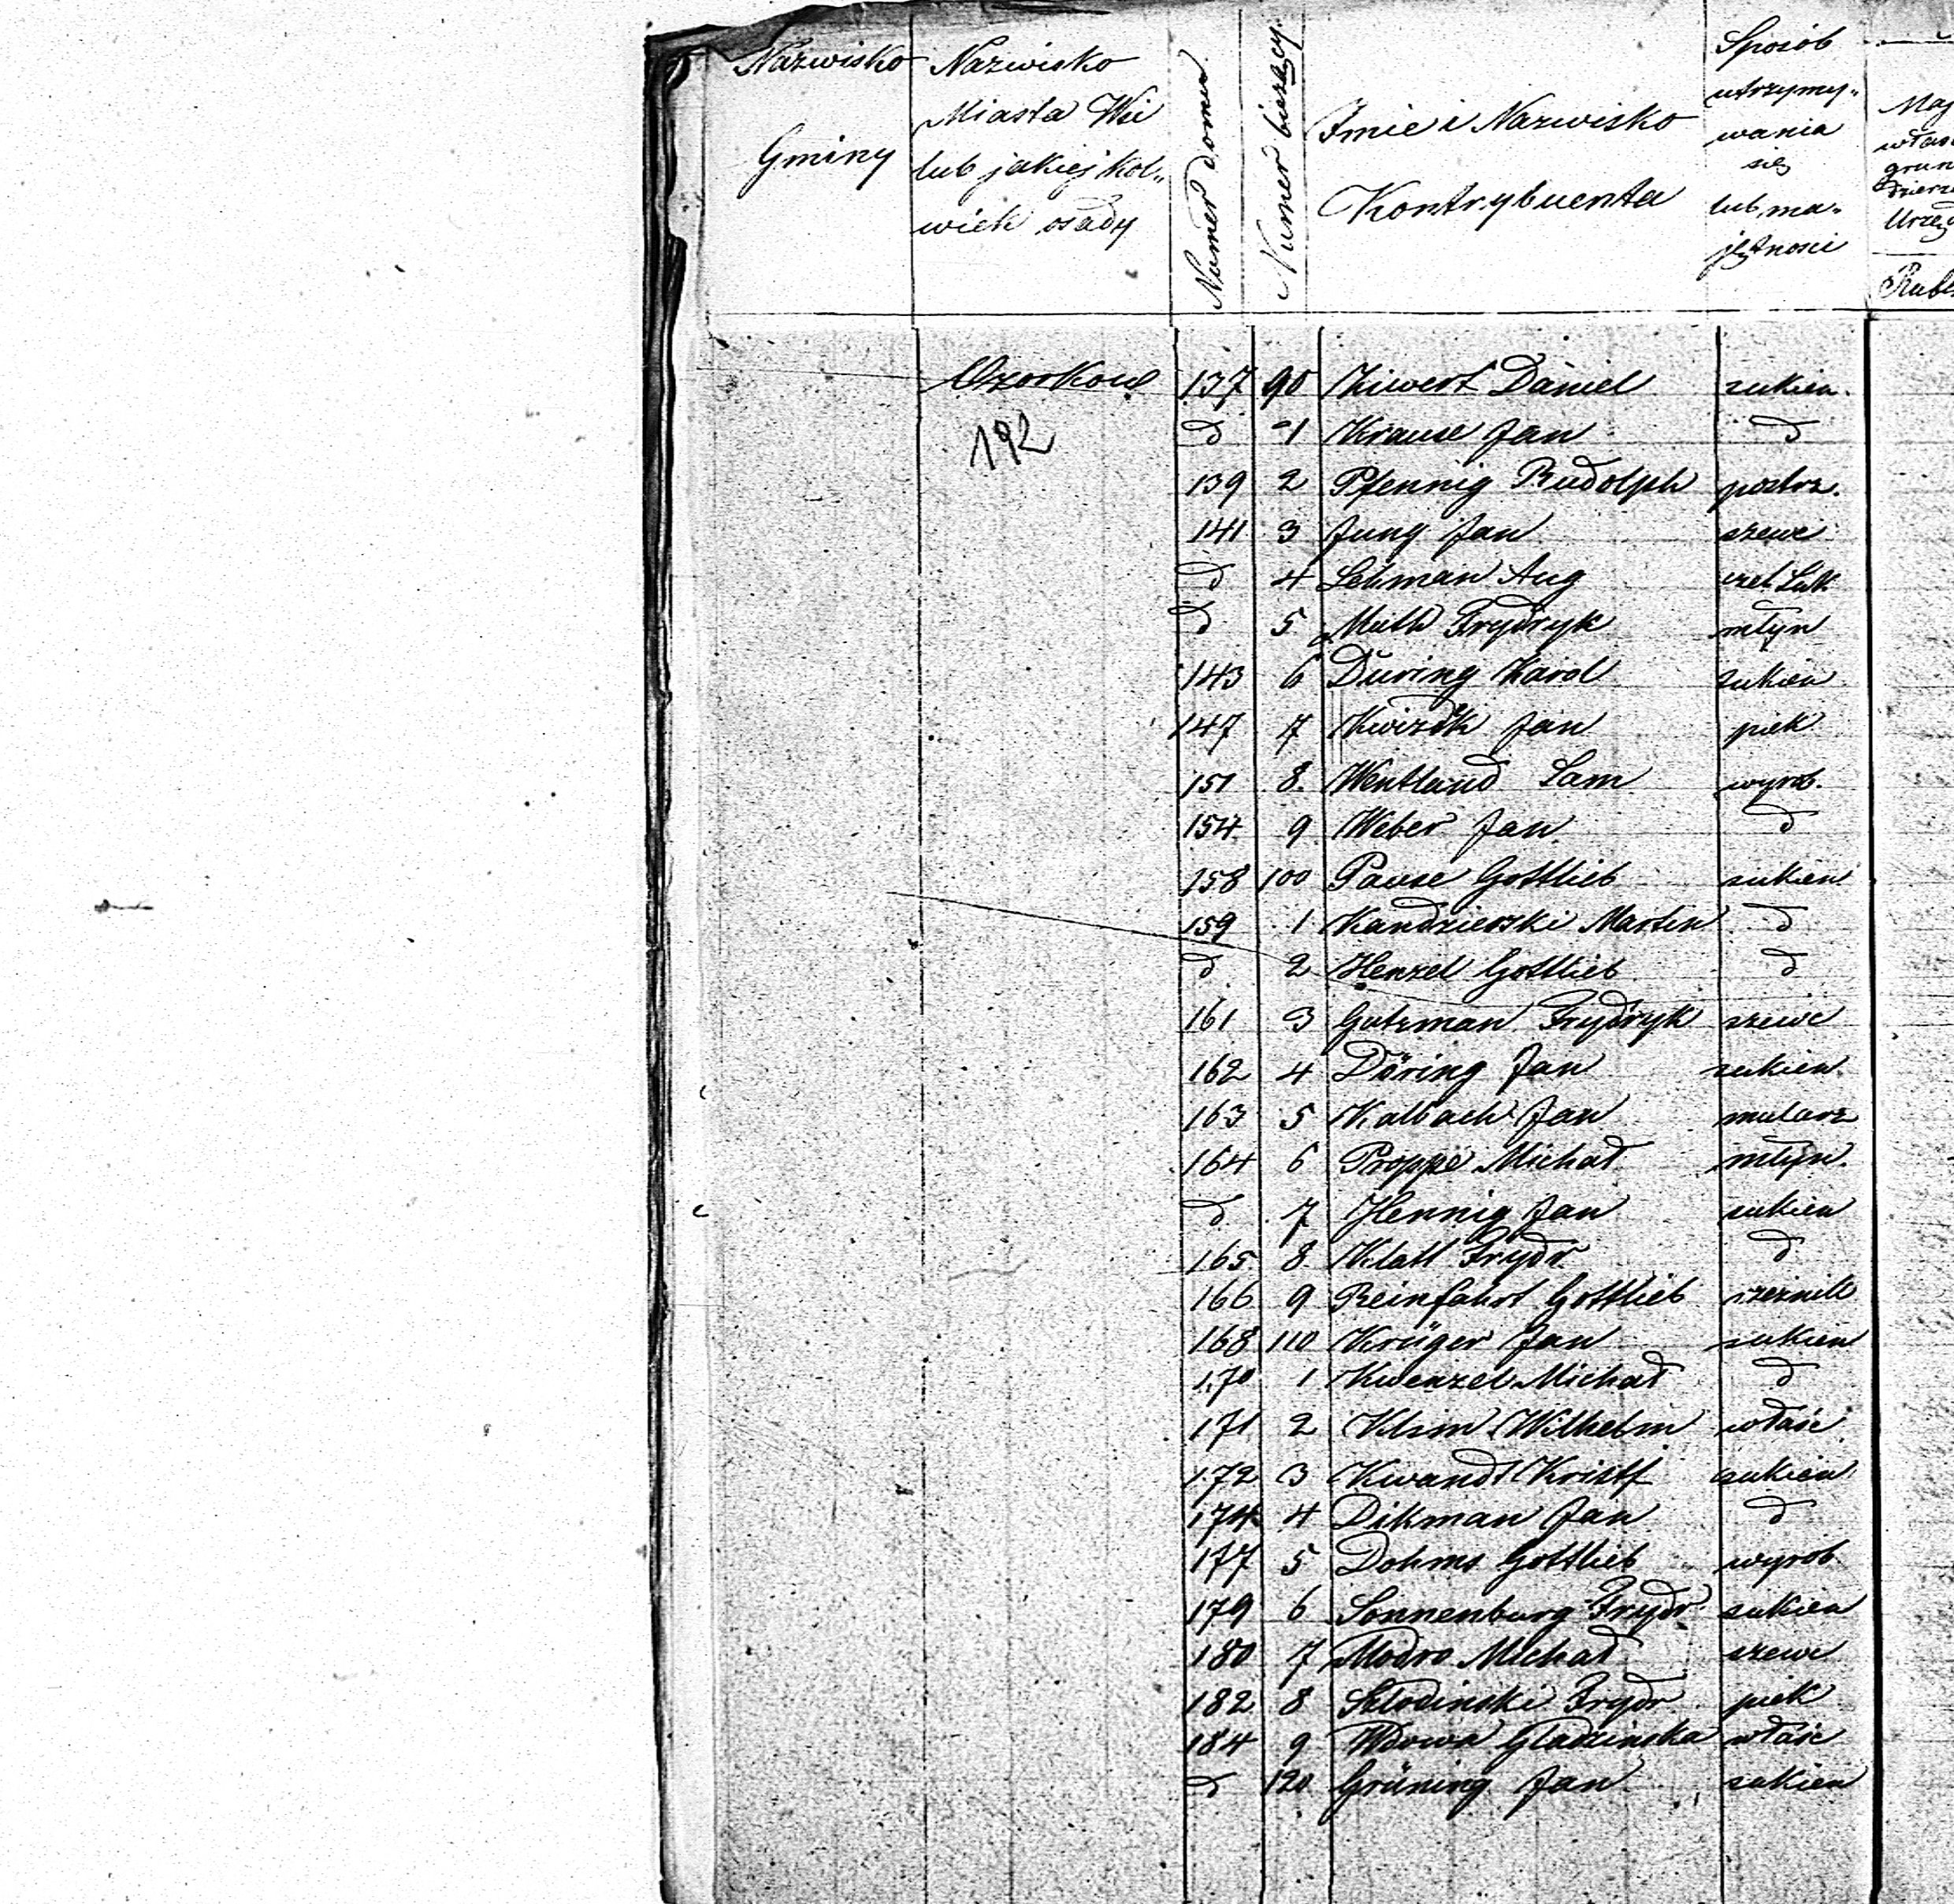 Nazwisko
Gminy
Nazwisko
Miasta Wsi
lub jakiej kol„
wiek osady
Numer domu
Numer bieżący
Imie i Nazwisko
Kontrybuenta
Sposób
utrzymy„
wania
się
lub ma„
jętnosci
Maj
włas
grun
Dzierz
Urzęd
Rubl
Ozorkow 137 90 Kiwert Daniel sukien.
192
d 1 Krause Jan d
139 2 Pfennig Rudolph postrz.
141 3 Jung Jan szewc
d 4 Lehman Aug czel Suk
d 5 Muth Frydryk młyn
143 6 Düring Karol sukien
147 7 Jan piek
151 8. Wentland Sam wyrob.
154 9 Weber Jan d
158 100 Pause Gottlieb sukien
159 1 Kandzierski Martin d
d 2 Henzel Gottlieb d
161 3 Gutzman Frydryk szewc
162 4 Döring Jan sukien
163 5 Kalbach Jan mularz
164 6 Proppe Michał młyn.
d 7 Hennig Jan sukien
165 8 Klatt Frydr d
166 9 Reinfahrt Gottlieb rzeznik
168 110 Krüger Jan sukien
170 1 Kwenzel Michał d
171 2 Klim Wilhelm właśc
172 3 Kwandt Kristf sukien
174 4 Dikman Jan d
177 5 Dohms Gottlieb wyrob
179 6 Sonnenburg Frydr sukien
180 7 Modro Michał szewc
182 8 Szlodinski Frydr piek
184 9 Wdowa Gladzinska właśc
d 120 Grüning Jan sukien